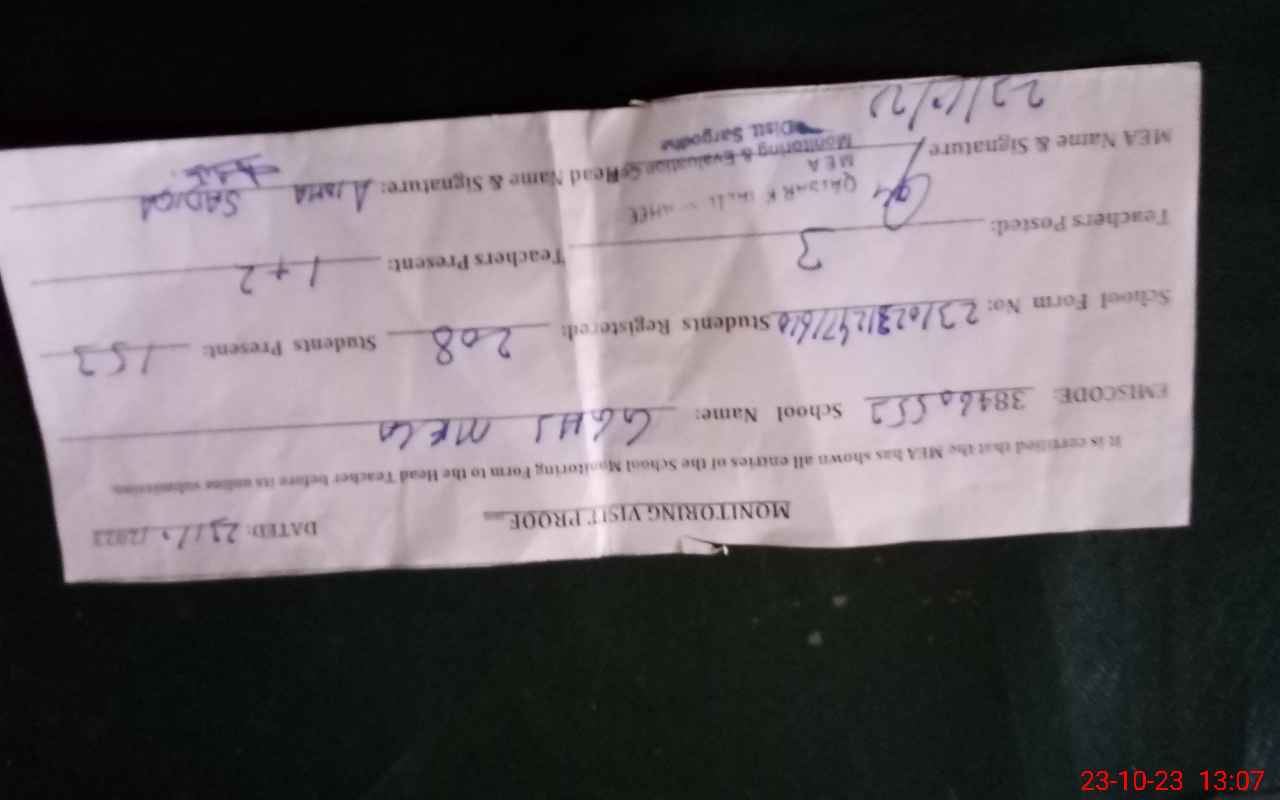 MONITORING VISIT PROOF
DATED: 23/10/2023
It is certified that the MEA has shown all entries of the School Monitoring Form to the Head Teacher before its online submission.
EMISCODE: 38460552 School Name: GGHS MELA
School Form No: Students Registered: 208 Students Present: 153
Teachers Posted: 3 Teachers Present: 1+2
MEA Name & Signature Head Name & Signature: SADIQA
MEA
Monitoring & Evaluation
Distt. Sargodha
23/10/23
23-10-23 13:07